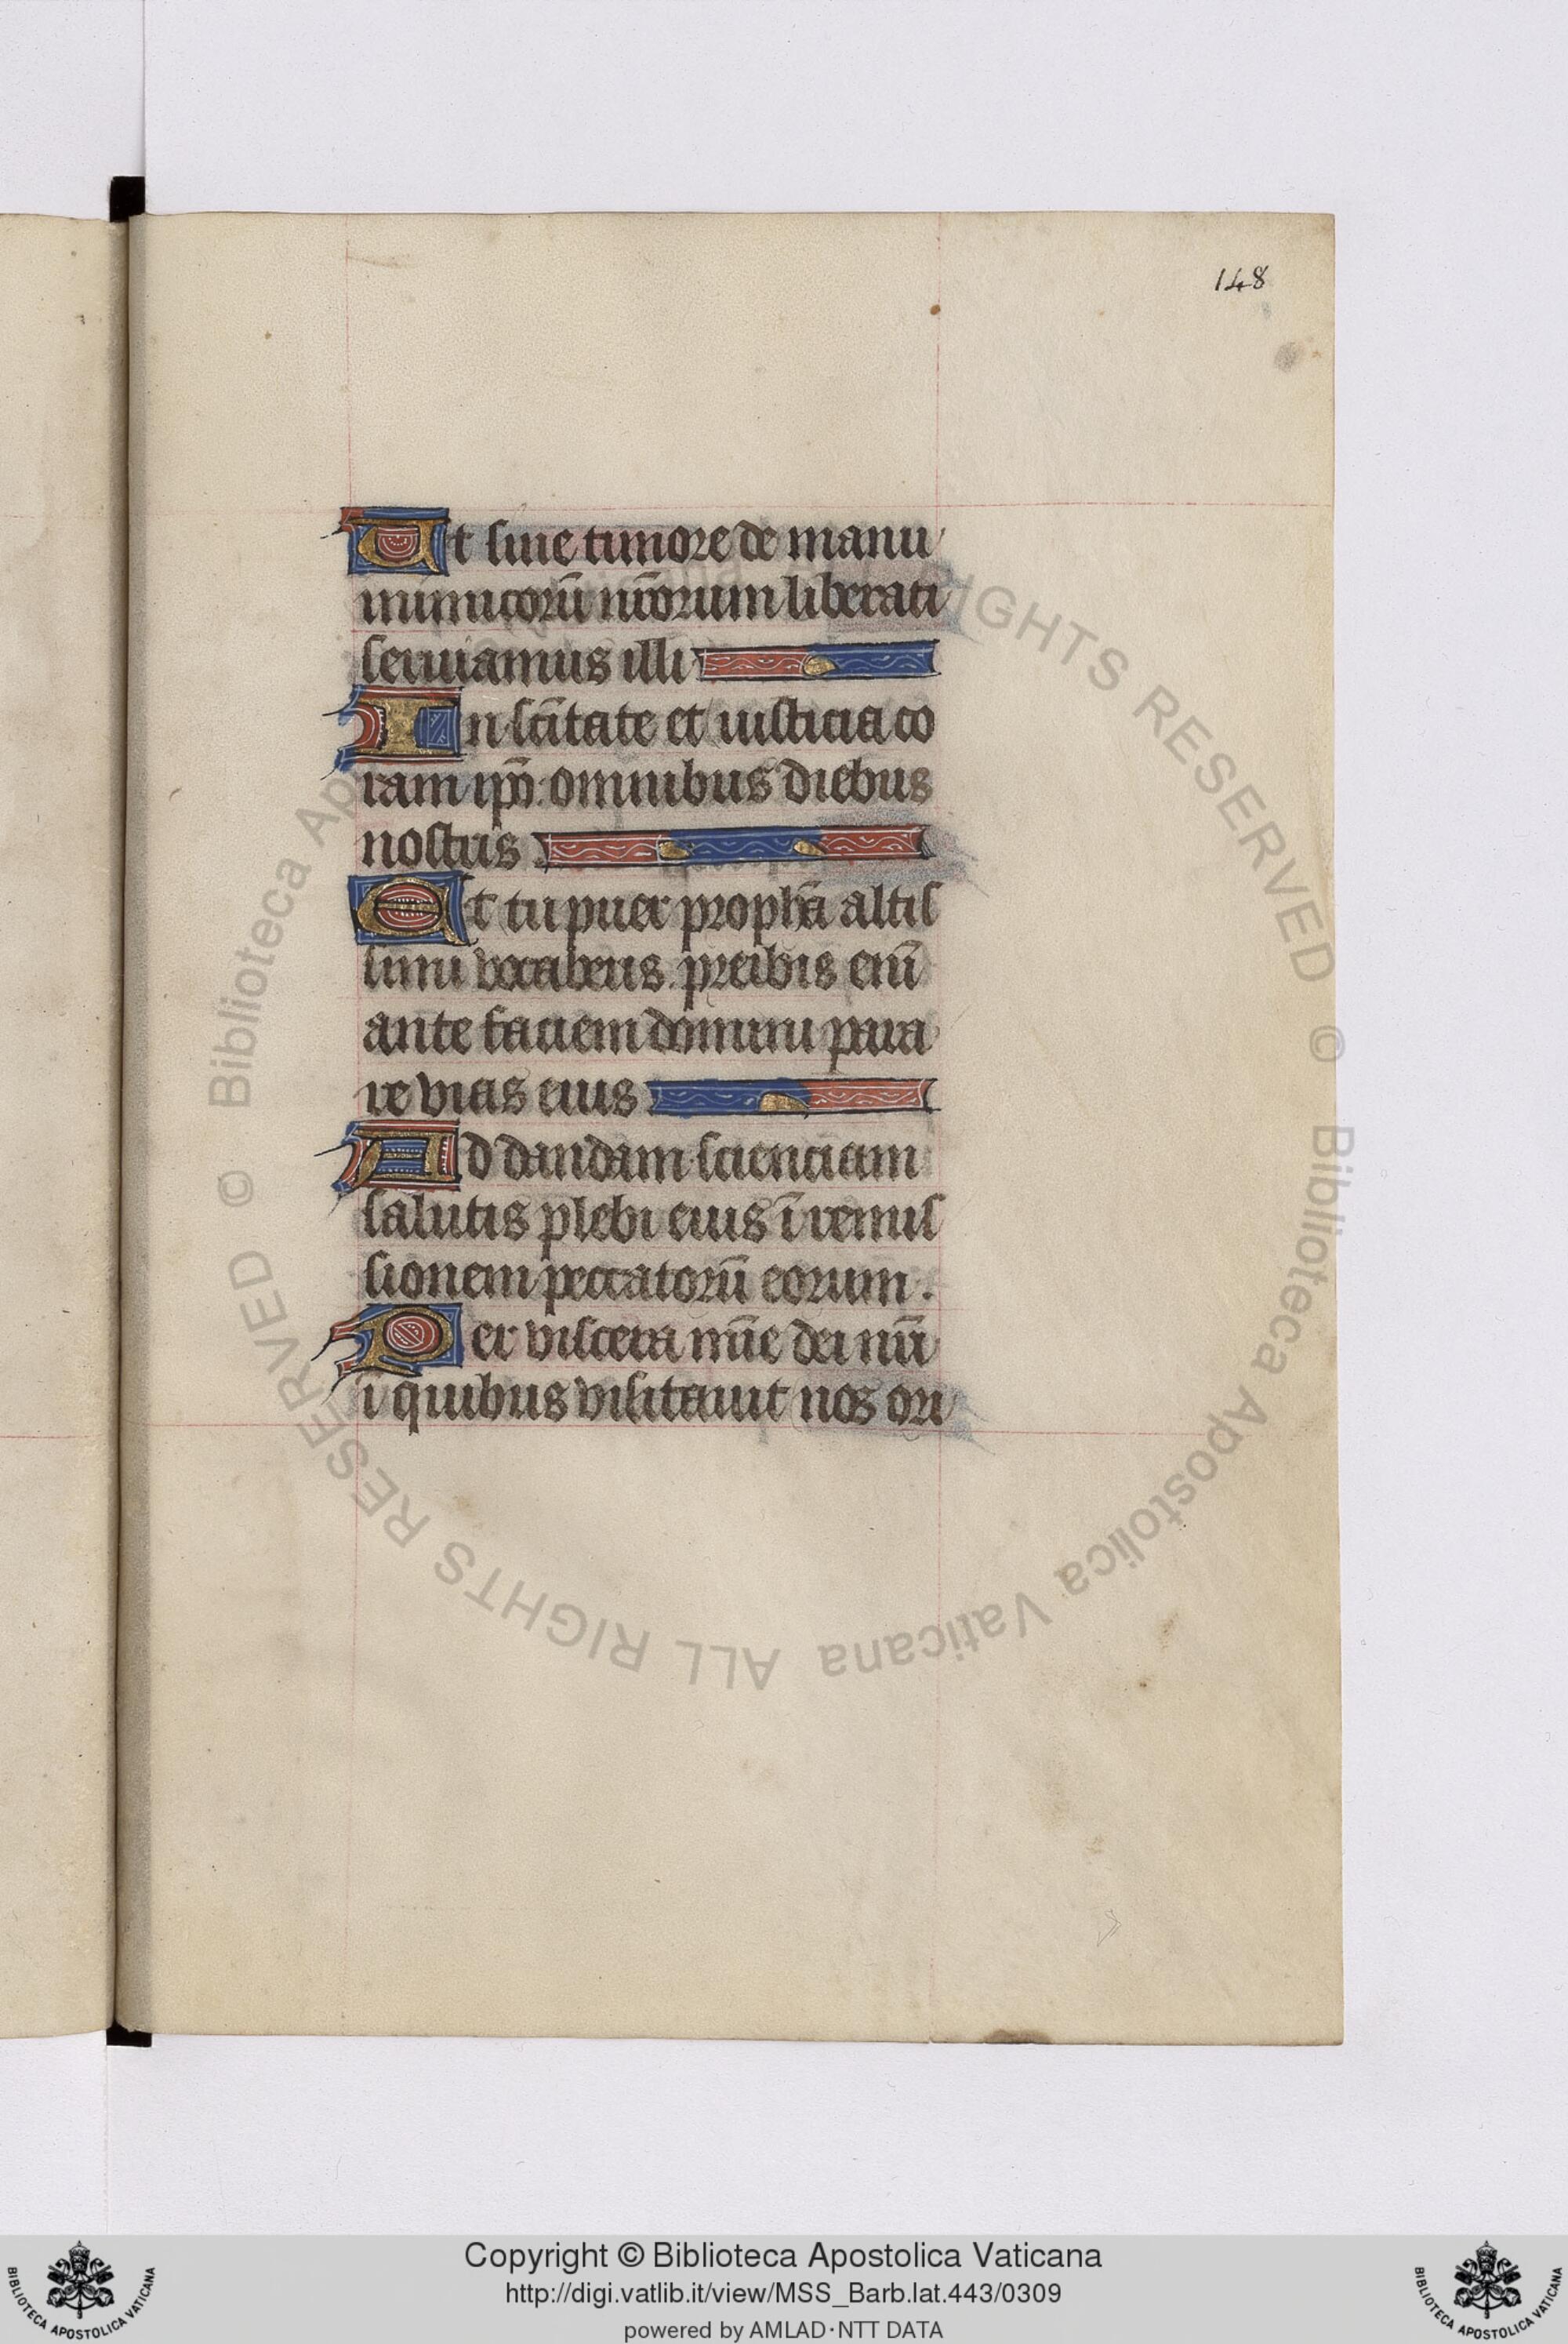 148
Ut sine timore de manu
inimicorū nr̄orum liberati
seruiamus illi
In sc̄itate et iusticia co
ram ip̄o. omnibus diebus
nostris
Et tu puer proph̄a altis
simi vocaberis. preibis enī
ante faciem domini para
re vias eius
Ad dandam scienciam
salutis plebi eius ī remis
sionem peccatorū eorum.
Per viscera mīe dei nr̄i
ī quibus visitauit nos ori
© Biblioteca Apostolica Vaticana ALL RIGHTS RESERVED © Biblioteca Apostolica Vaticana ALL RIGHTS RESERVED
Copyright © Biblioteca Apostolica Vaticana
http://digi.vatlib.it/view/MSS_Barb.lat.443/0309
powered by AMLAD·NTT DATA
BIBLIOTECA APOSTOLICA VATICANA
BIBLIOTECA APOSTOLICA VATICANA